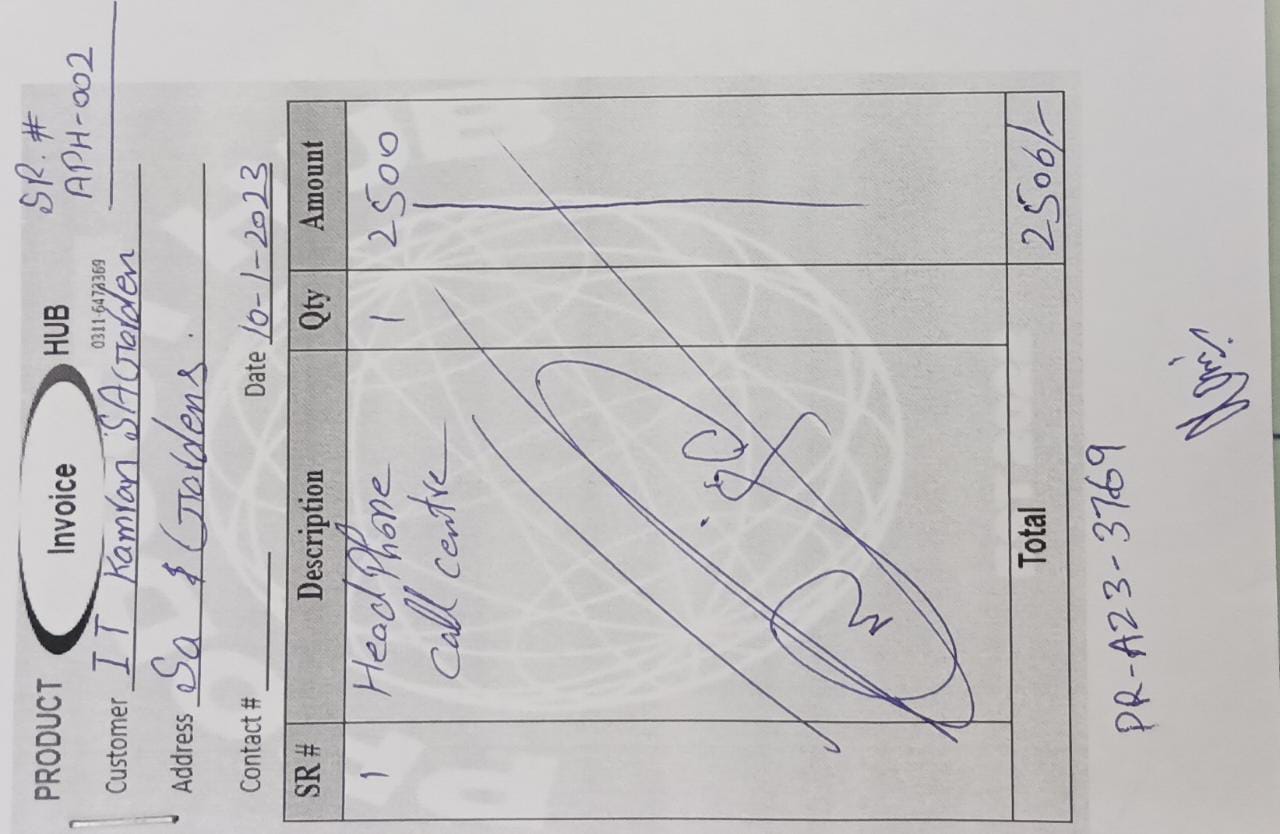 PRODUCT Invoice HUB
SR. #
APH-002
0311-6473369
Customer IT Kamran SAGarden
Address Sa & Gardens.
Contact # Date 10-1-2023
SR # Description Qty Amount
1 Head Phone 1 2500
Call centre
Total 2500/-
PR-A23-3769